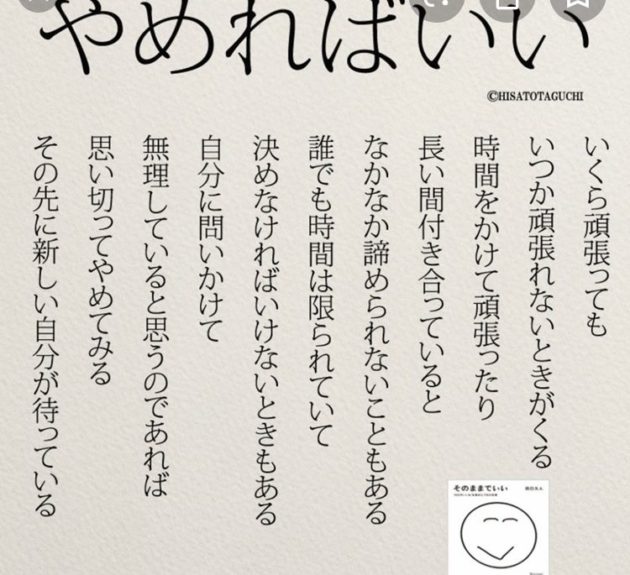 やめればいい
©HISATOTAGUCHI
いくら頑張っても
いつか頑張れないときがくる
時間をかけて頑張ったり
長い間付き合っていると
なかなか諦められないこともある
誰でも時間は限られていて
決めなければいけないときもある
自分に問いかけて
無理していると思うのであれば
思い切ってやめてみる
その先に新しい自分が待っている
そのままでいい